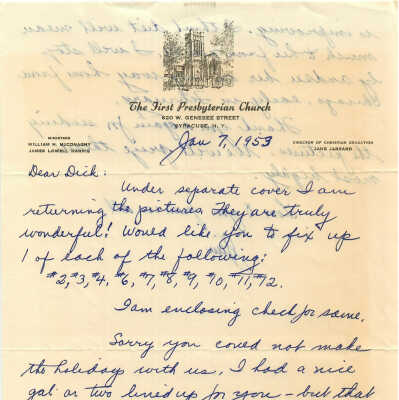 The First Presbyterian Church
620 W. GENESEE STREET
SYRACUSE, N.Y.
MINISTERS
WILLIAM H. McCONAGHY
DIRECTOR OF CHRISTIAN EDUCATION
Jan 7, 1953
Dear Dick:
Under separate cover I am
returning the pictures. They are truly
wonderful! Would like you to fix up
1 of each of the following:
#2, #3, #4, #6, #7, #8, #9, #10, #11, #12.
I am enclosing check for same.
Sorry you could not make
the holidays with us. I had a nice
gal or two lined up for you – but that